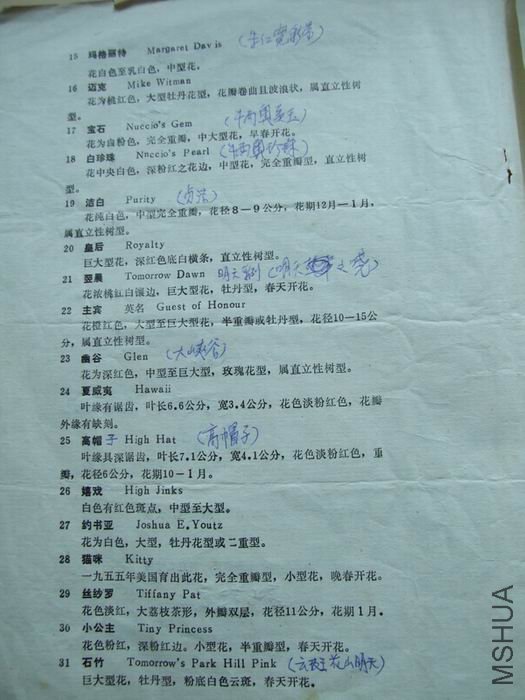 15 玛格丽特 Margaret Davis
花白色至乳白色，中型花。
16 迈克 Mike Witman
花为桃红色，大型牡丹花型，花瓣卷曲且波浪状，属直立性树
型。
17 宝石 Nuccio's Gem
花为白粉色，完全重瓣，中大型花，早春开花。
18 白珍珠 Nuccio's Pearl (牛西奥珍珠)
花中央白色，深粉红之花边，中型花，完全重瓣型，直立性树
型。
19 洁白 Purity (贞洁)
花纯白色，中型完全重瓣，花径8—9公分，花期12月—1月，
属直立性树型。
20 皇后 Royalty
巨大型花，深红色底白横条，直立性树型。
21 翌晨 Tomorrow Dawn
花浓桃红白镶边，巨大型花，牡丹型，春天开花。
22 主宾 英名 Guest of Honour
花橙红色，大型至大型花，半重瓣或牡丹型，花径10—15公
分，属直立性树型。
23 幽谷 Glen (大峡谷)
花为深红色，中型至巨大型，玫瑰花型，属直立性树型。
24 夏威夷 Hawaii
叶缘有锯齿，叶长6.6公分，宽3.4公分，花色淡粉红色，花瓣
外缘有缺刻。
25 高帽子 High Hat (高帽子)
叶缘具深锯齿，叶长7.1公分，宽4.1公分，花色淡粉红色，重
瓣，花径6公分，花期10—1月。
26 嬉戏 High Jinks
白色有红色斑点，中型至大型。
27 约书亚 Joshua E.Youtz
花为白色，大型，牡丹花型或二重型。
28 猫咪 Kitty
一九五五年美国育出此花，完全重瓣型，小型花，晚春开花。
29 丝纱罗 Tiffany Pat
花色淡红，大荔枝茶形，外瓣双层，花径11公分，花期1月。
30 小公主 Tiny Princess
花色粉红，深粉红边。小型花，半重瓣型，春天开花。
31 石竹 Tomorrow's Park Hill Pink
巨大型花，牡丹型，粉底白色云斑，春天开花。
MSHUA